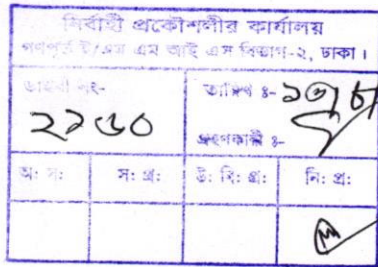 নির্বাহী প্রকৌশলীর কার্যালয়
গণপূর্ত ই/এম এম আই এস বিভাগ-২, ঢাকা।
ডায়েরী নং- তারিখ ঃ-
গ্রহণকারী ঃ-
অ: স: স: প্র: উ: বি: প্র: নি: প্র: